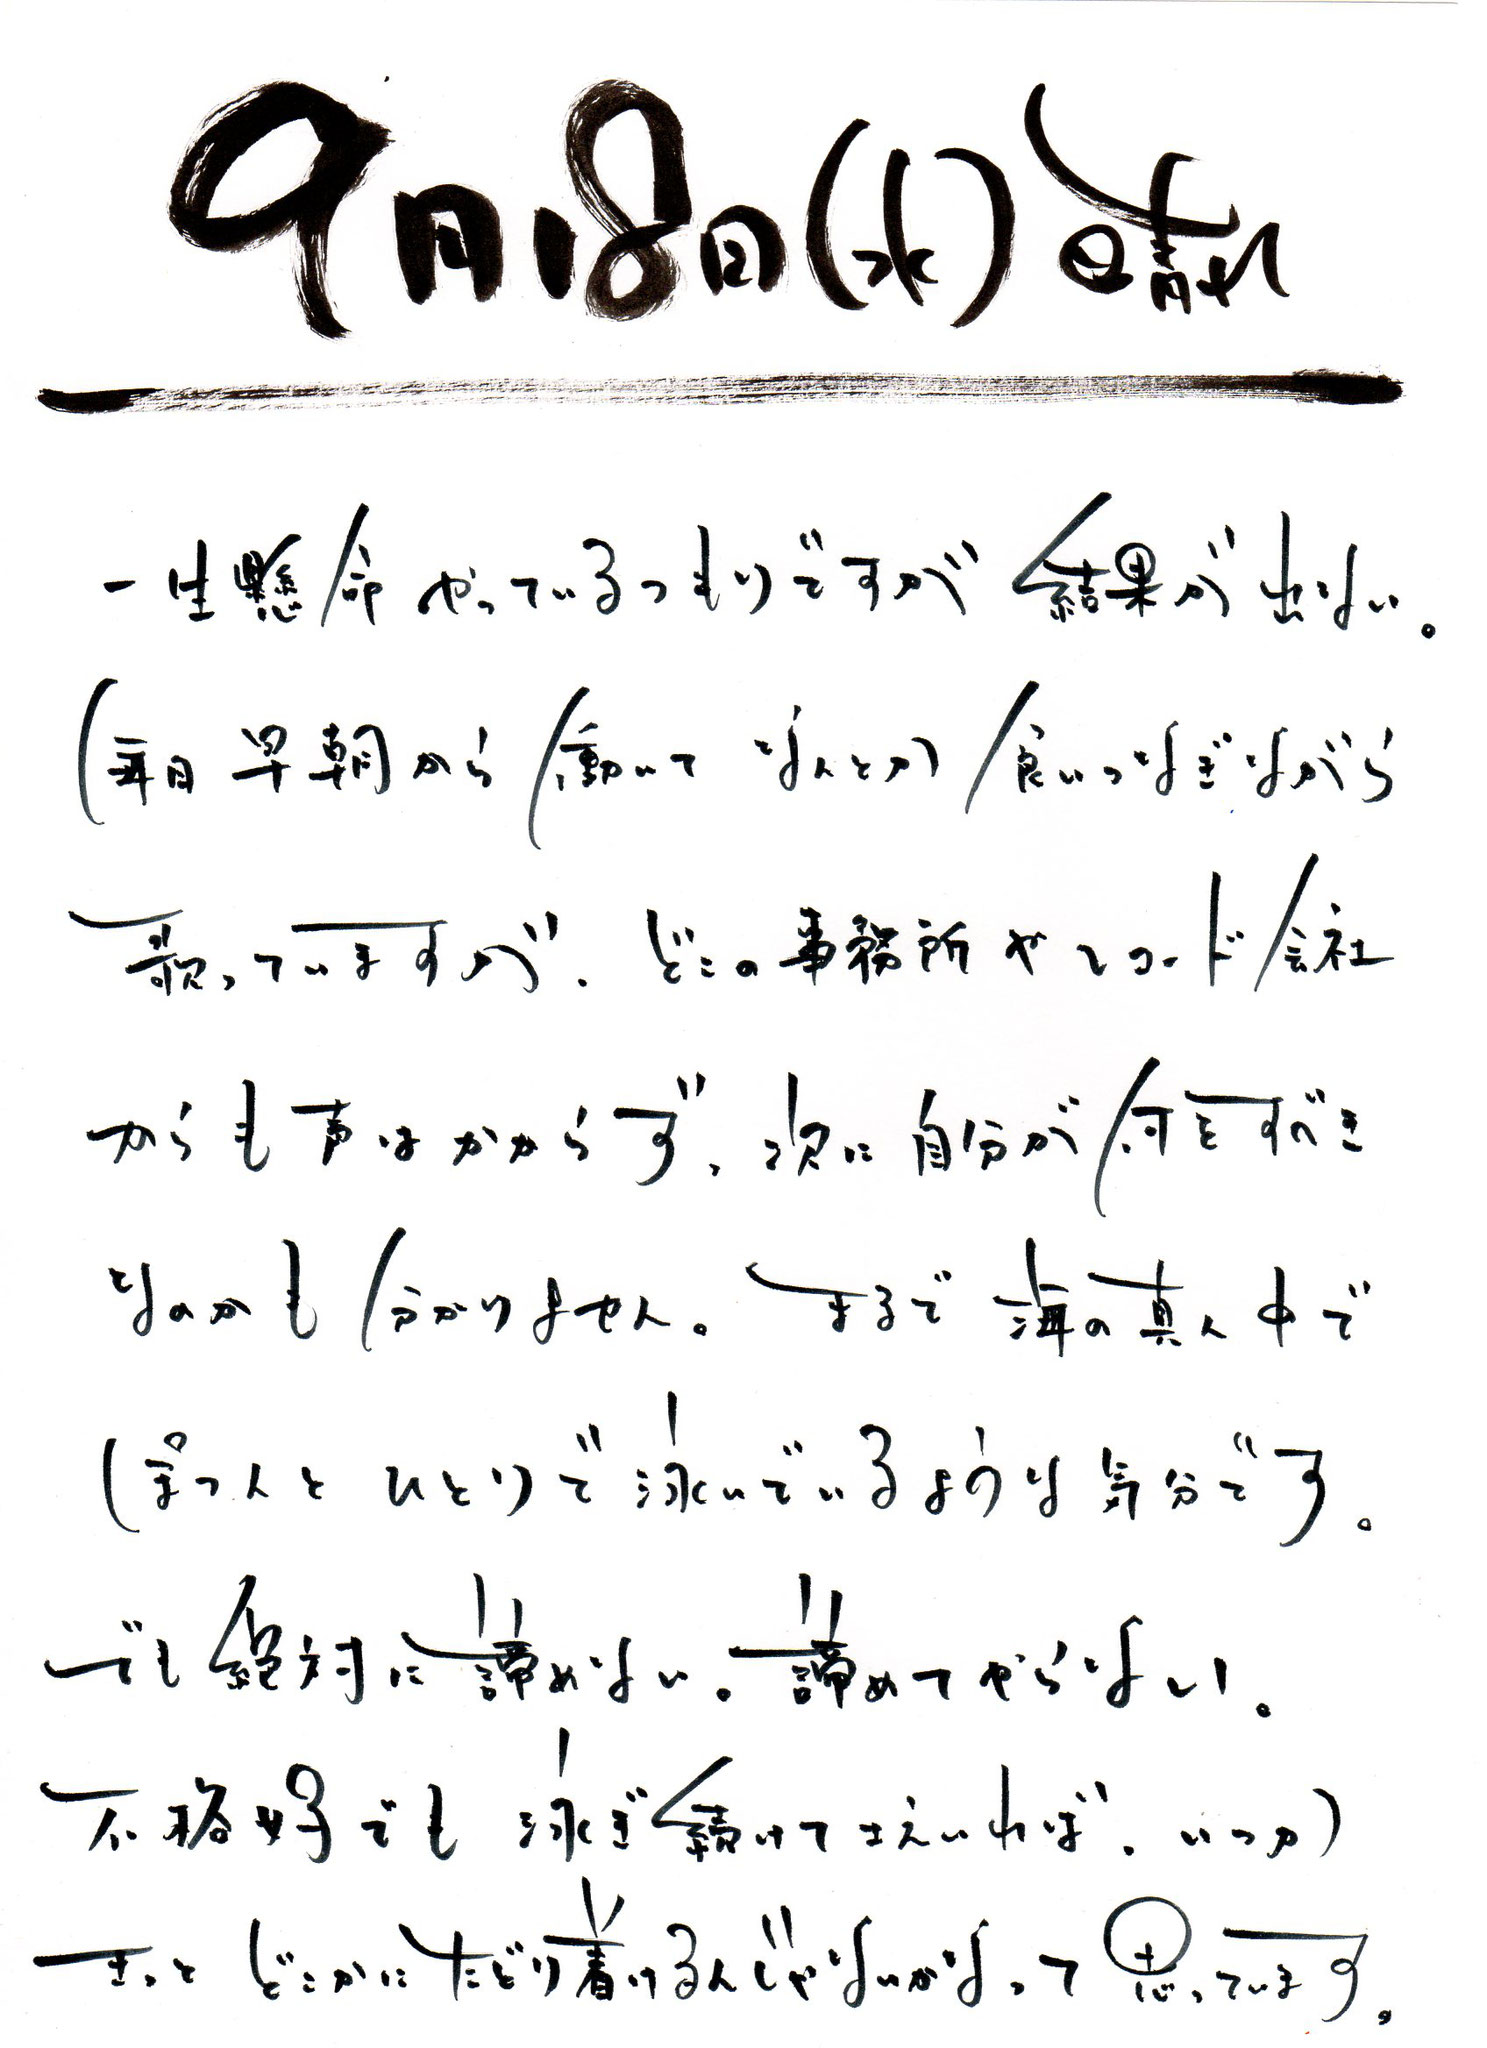 9月18日(水)晴れ
一生懸命やっているつもりですが結果が出ない。
毎日早朝から働いてなんとか食いつなぎながら
歌っていますが、どこの事務所やレコード会社
からも声はかからず、次に自分が何をすべき
なのかも分かりません。まるで海の真ん中で
ぽつんとひとりで泳いでいるような気分です。
でも絶対に諦めない。諦めてやらない。
不格好でも泳ぎ続けてさえいれば、いつか
きっとどこかにたどり着けるんじゃないかなって思っています。